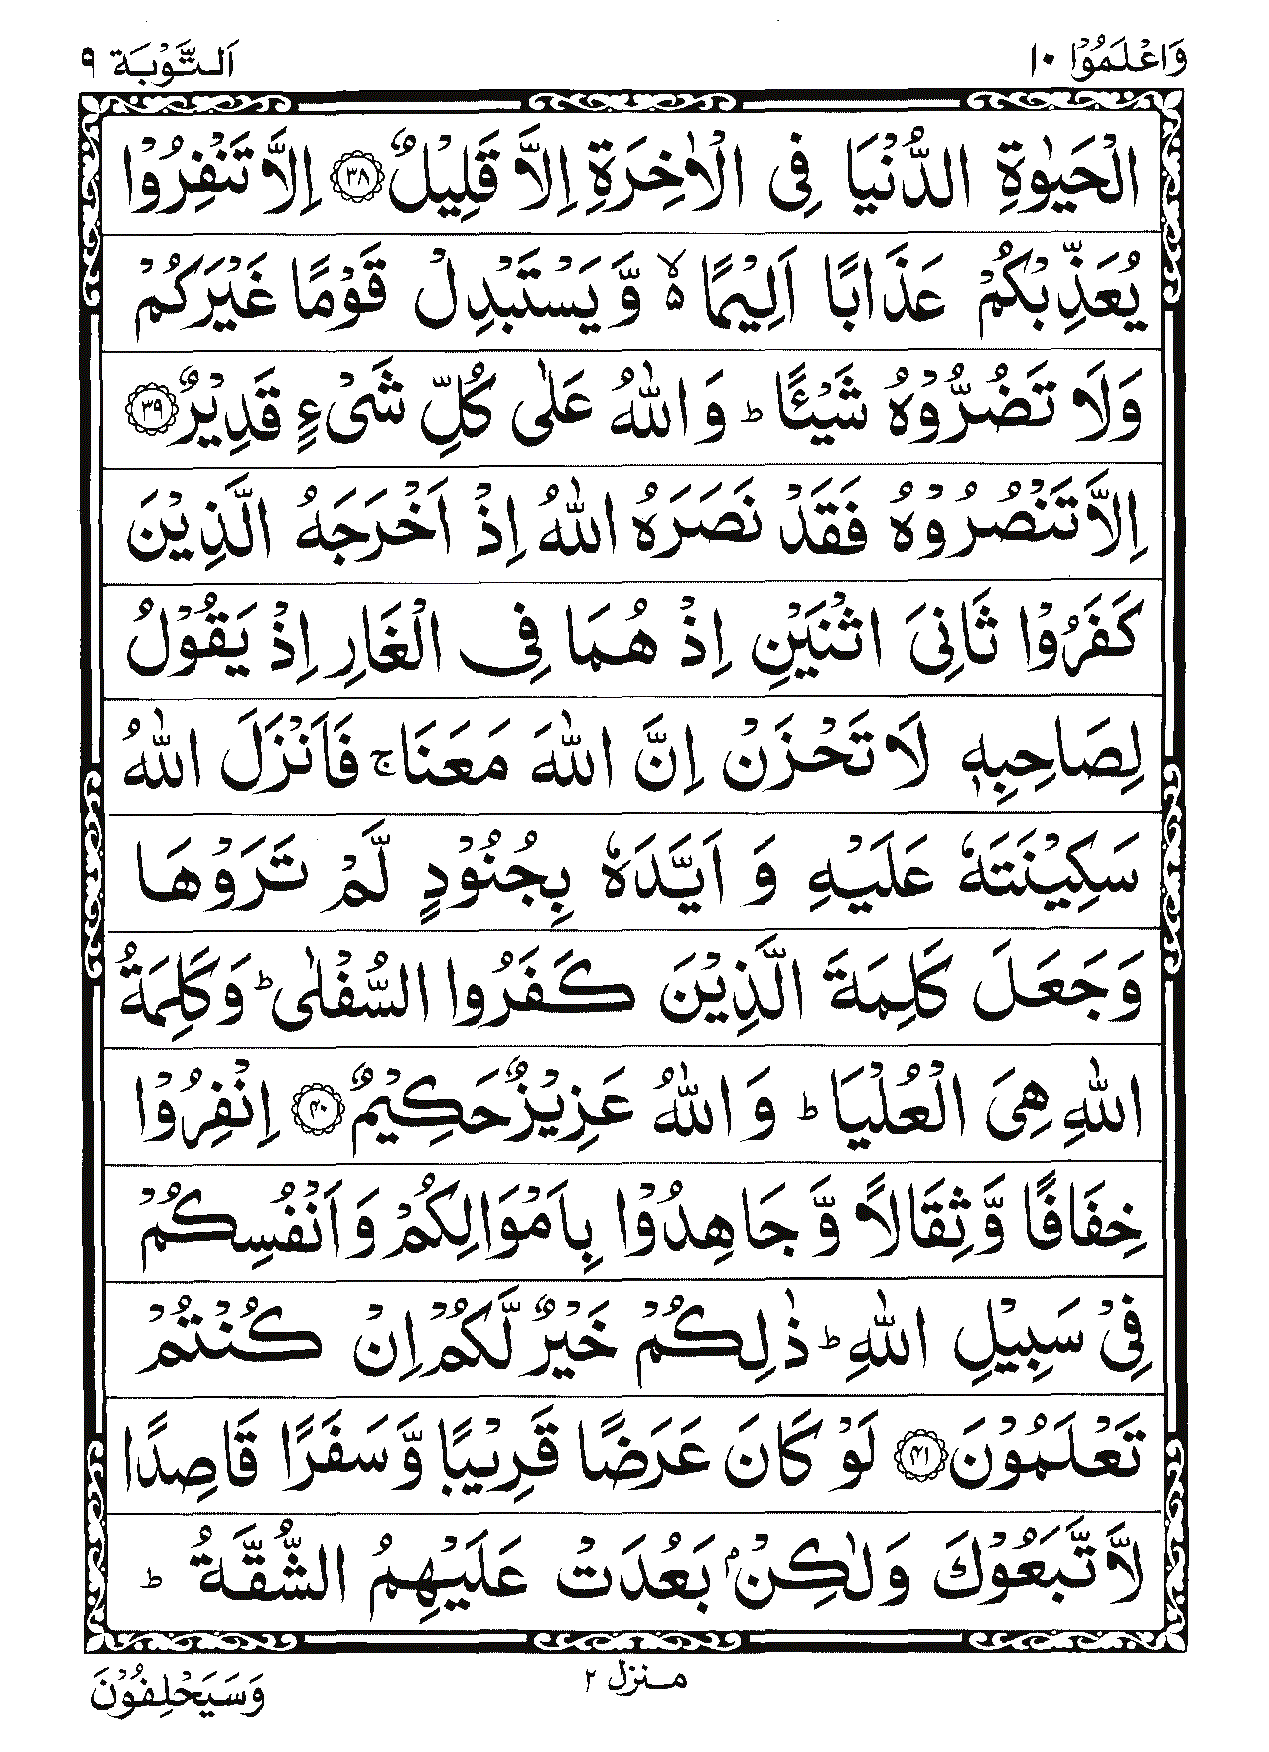 وَاعْلَمُوْٓا ١٠ اَلتَّوْبَة ٩
الْحَيٰوةِ الدُّنْيَا فِى الْاٰخِرَةِ اِلَّا قَلِيْلٌ ﴿٣٨﴾ اِلَّا تَنْفِرُوْا
يُعَذِّبْكُمْ عَذَابًا اَلِيْمًا ۙ۵ وَّ يَسْتَبْدِلْ قَوْمًا غَيْرَكُمْ
وَلَا تَضُرُّوْهُ شَيْـًٔا ؕ وَ اللّٰهُ عَلٰى كُلِّ شَىْءٍ قَدِيْرٌ ﴿٣٩﴾
اِلَّا تَنْصُرُوْهُ فَقَدْ نَصَرَهُ اللّٰهُ اِذْ اَخْرَجَهُ الَّذِيْنَ
كَفَرُوْا ثَانِىَ اثْنَيْنِ اِذْ هُمَا فِى الْغَارِ اِذْ يَقُوْلُ
لِصَاحِبِهٖ لَا تَحْزَنْ اِنَّ اللّٰهَ مَعَنَا ۚ فَاَنْزَلَ اللّٰهُ
سَكِيْنَتَهٗ عَلَيْهِ وَ اَيَّدَهٗ بِجُنُوْدٍ لَّمْ تَرَوْهَا
وَجَعَلَ كَلِمَةَ الَّذِيْنَ كَفَرُوا السُّفْلٰى ؕ وَكَلِمَةُ
اللّٰهِ هِىَ الْعُلْيَا ؕ وَ اللّٰهُ عَزِيْزٌ حَكِيْمٌ ﴿٤٠﴾ اِنْفِرُوْا
خِفَافًا وَّ ثِقَالًا وَّ جَاهِدُوْا بِاَمْوَالِكُمْ وَ اَنْفُسِكُمْ
فِىْ سَبِيْلِ اللّٰهِ ؕ ذٰلِكُمْ خَيْرٌ لَّكُمْ اِنْ كُنْتُمْ
تَعْلَمُوْنَ ﴿٤١﴾ لَوْ كَانَ عَرَضًا قَرِيْبًا وَّ سَفَرًا قَاصِدًا
لَّا تَّبَعُوْكَ وَلٰكِنْۢ بَعُدَتْ عَلَيْهِمُ الشُّقَّةُ ؕ
مـنزل ٢
وَسَيَحْلِفُوْنَ